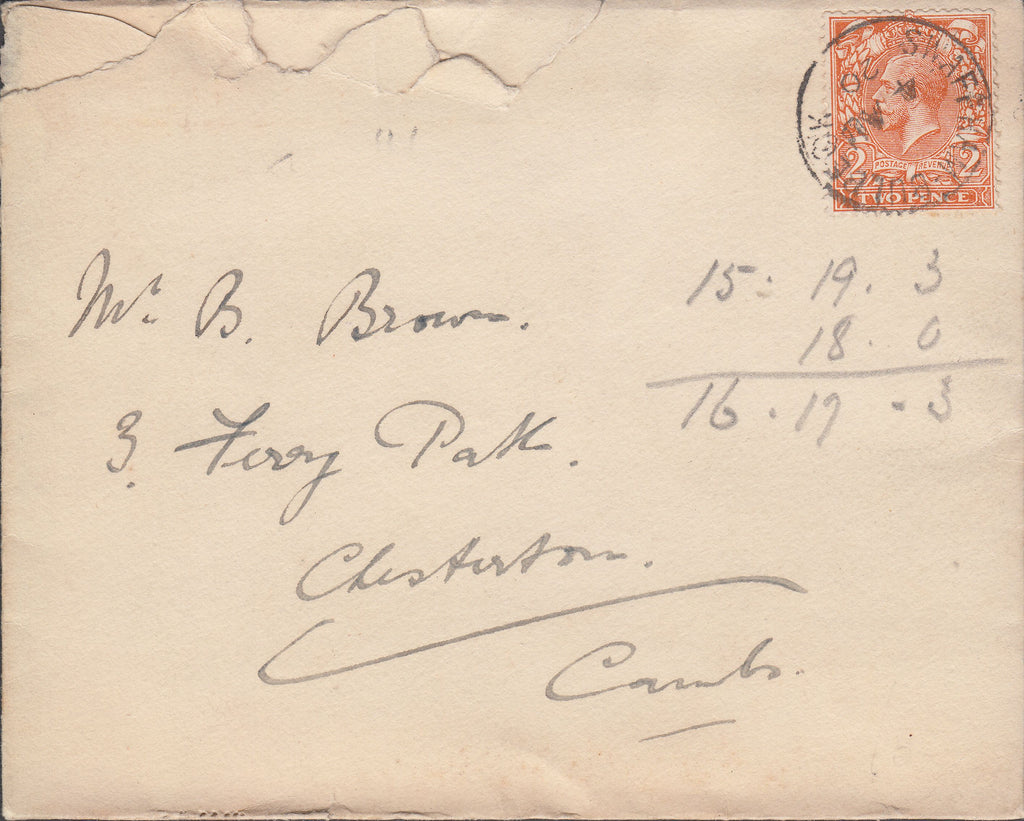 2 POSTAGE REVENUE 2
TWO PENCE
15: 19. 3
18. 0
16 . 17 . 3
Mr. B. Brown.
3, Ferry Path.
Chesterton.
Cambs.